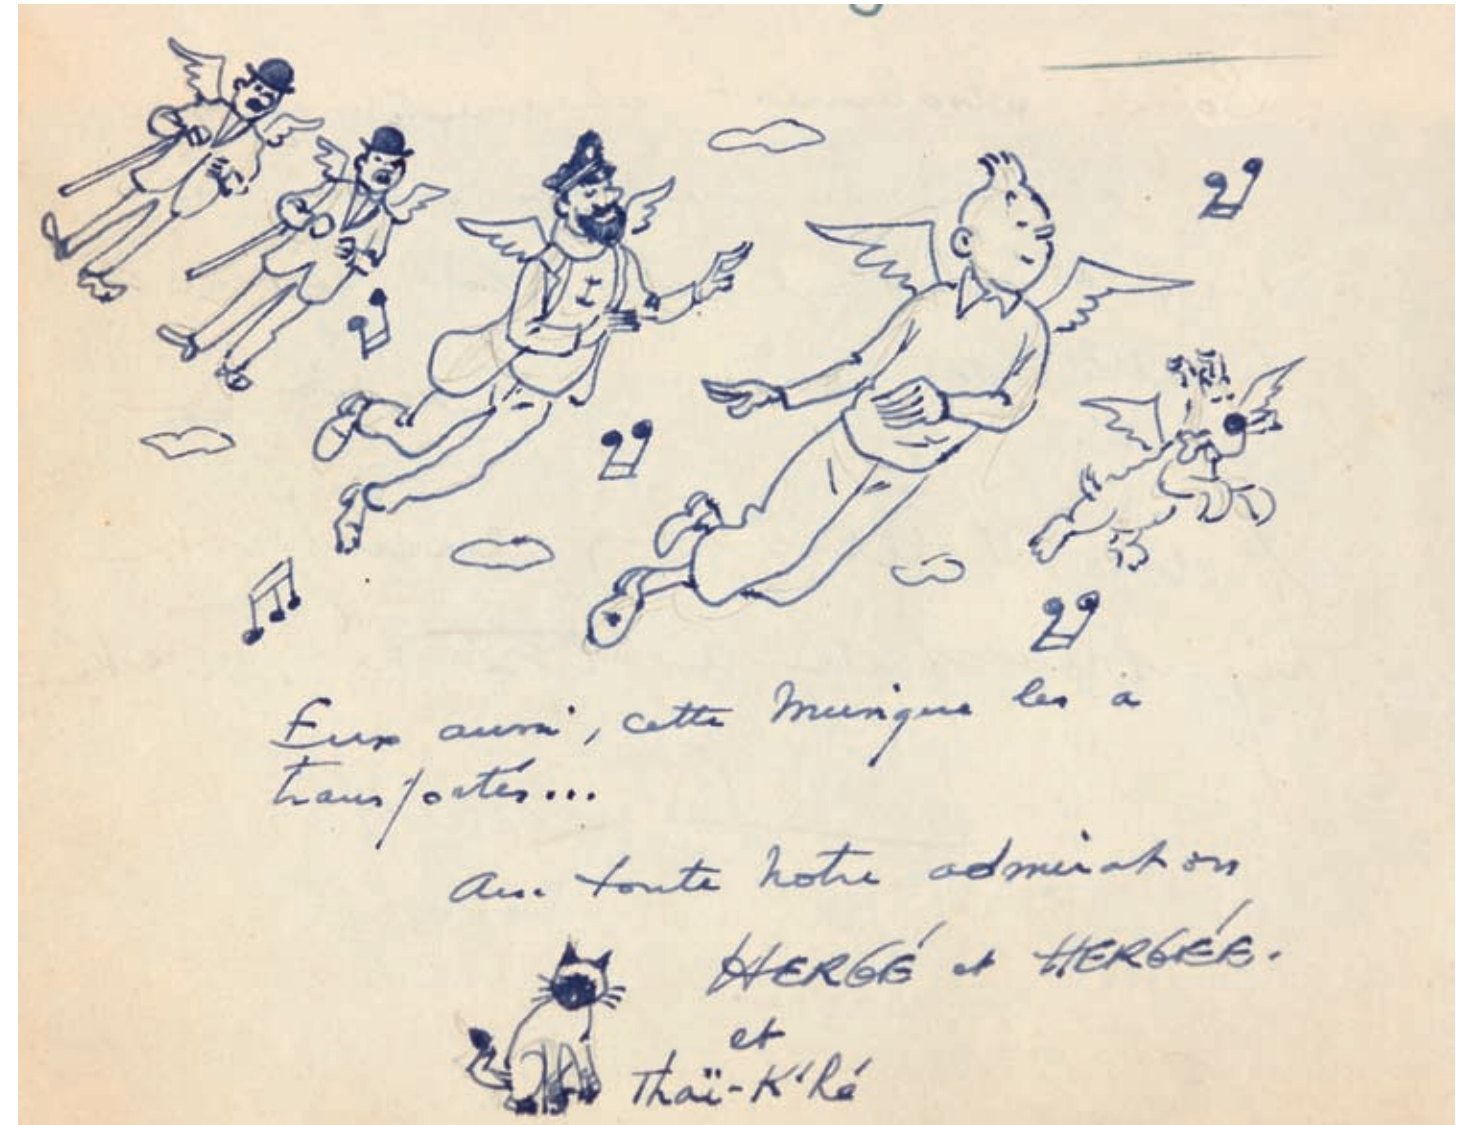 Eux aussi, cette musique les a
transportés...
Avec toute notre admiration
HERGÉ et HERGÉE.
et
Thaï-K'Ré